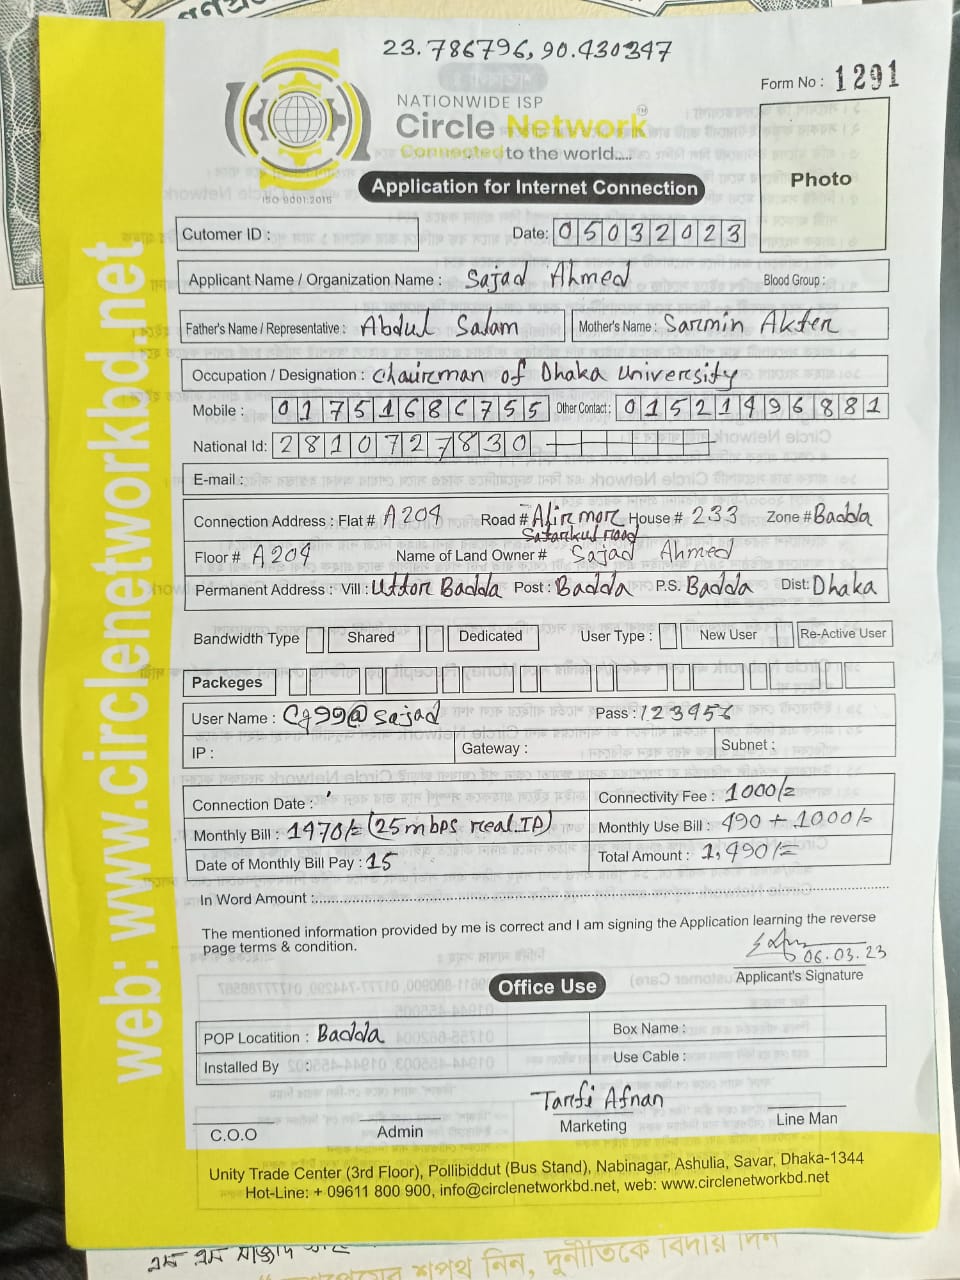 23.786796, 90.430347
Form No : 1291
NATIONWIDE ISP
Circle Network
TM
Connected to the world.....
ISO 9001:2015
Application for Internet Connection
Photo
Cutomer ID :
Date: 05032023
Applicant Name / Organization Name : Sajad Ahmed
Blood Group :
Father's Name / Representative : Abdul Salam
Mother's Name : Sarmin Akter
Occupation / Designation : Chairman of Dhaka University
Mobile :
Other Contact : 01521496881
National Id: 2810727830
E-mail :
Connection Address : Flat # A204 Road # House # 233 Zone # Badda
Satarkul road
Floor # A204 Name of Land Owner # Sajad Ahmed
Permanent Address : Vill : Uttor Badda Post : Badda P.S. Badda Dist: Dhaka
Bandwidth Type Shared Dedicated User Type : New User Re-Active User
Packeges
User Name : @sajad Pass : 123456
IP : Gateway : Subnet :
Connection Date : Connectivity Fee : 1000/=
Monthly Bill : 1470/= (25mbps real IP) Monthly Use Bill : 490 + 1000/=
Date of Monthly Bill Pay : 15 Total Amount : 1,490/=
In Word Amount :
The mentioned information provided by me is correct and I am signing the Application learning the reverse
page terms & condition.
06.03.23
Applicant's Signature
Office Use
POP Locatition : Badda Box Name :
Installed By : Use Cable :
Tanfi Afnan
C.O.O Admin Marketing Line Man
Unity Trade Center (3rd Floor), Pollibiddut (Bus Stand), Nabinagar, Ashulia, Savar, Dhaka-1344
Hot-Line: + 09611 800 900, info@circlenetworkbd.net, web: www.circlenetworkbd.net
web: www.circlenetworkbd.net
শপথ নিন, দুর্নীতিকে বিদায় দিন